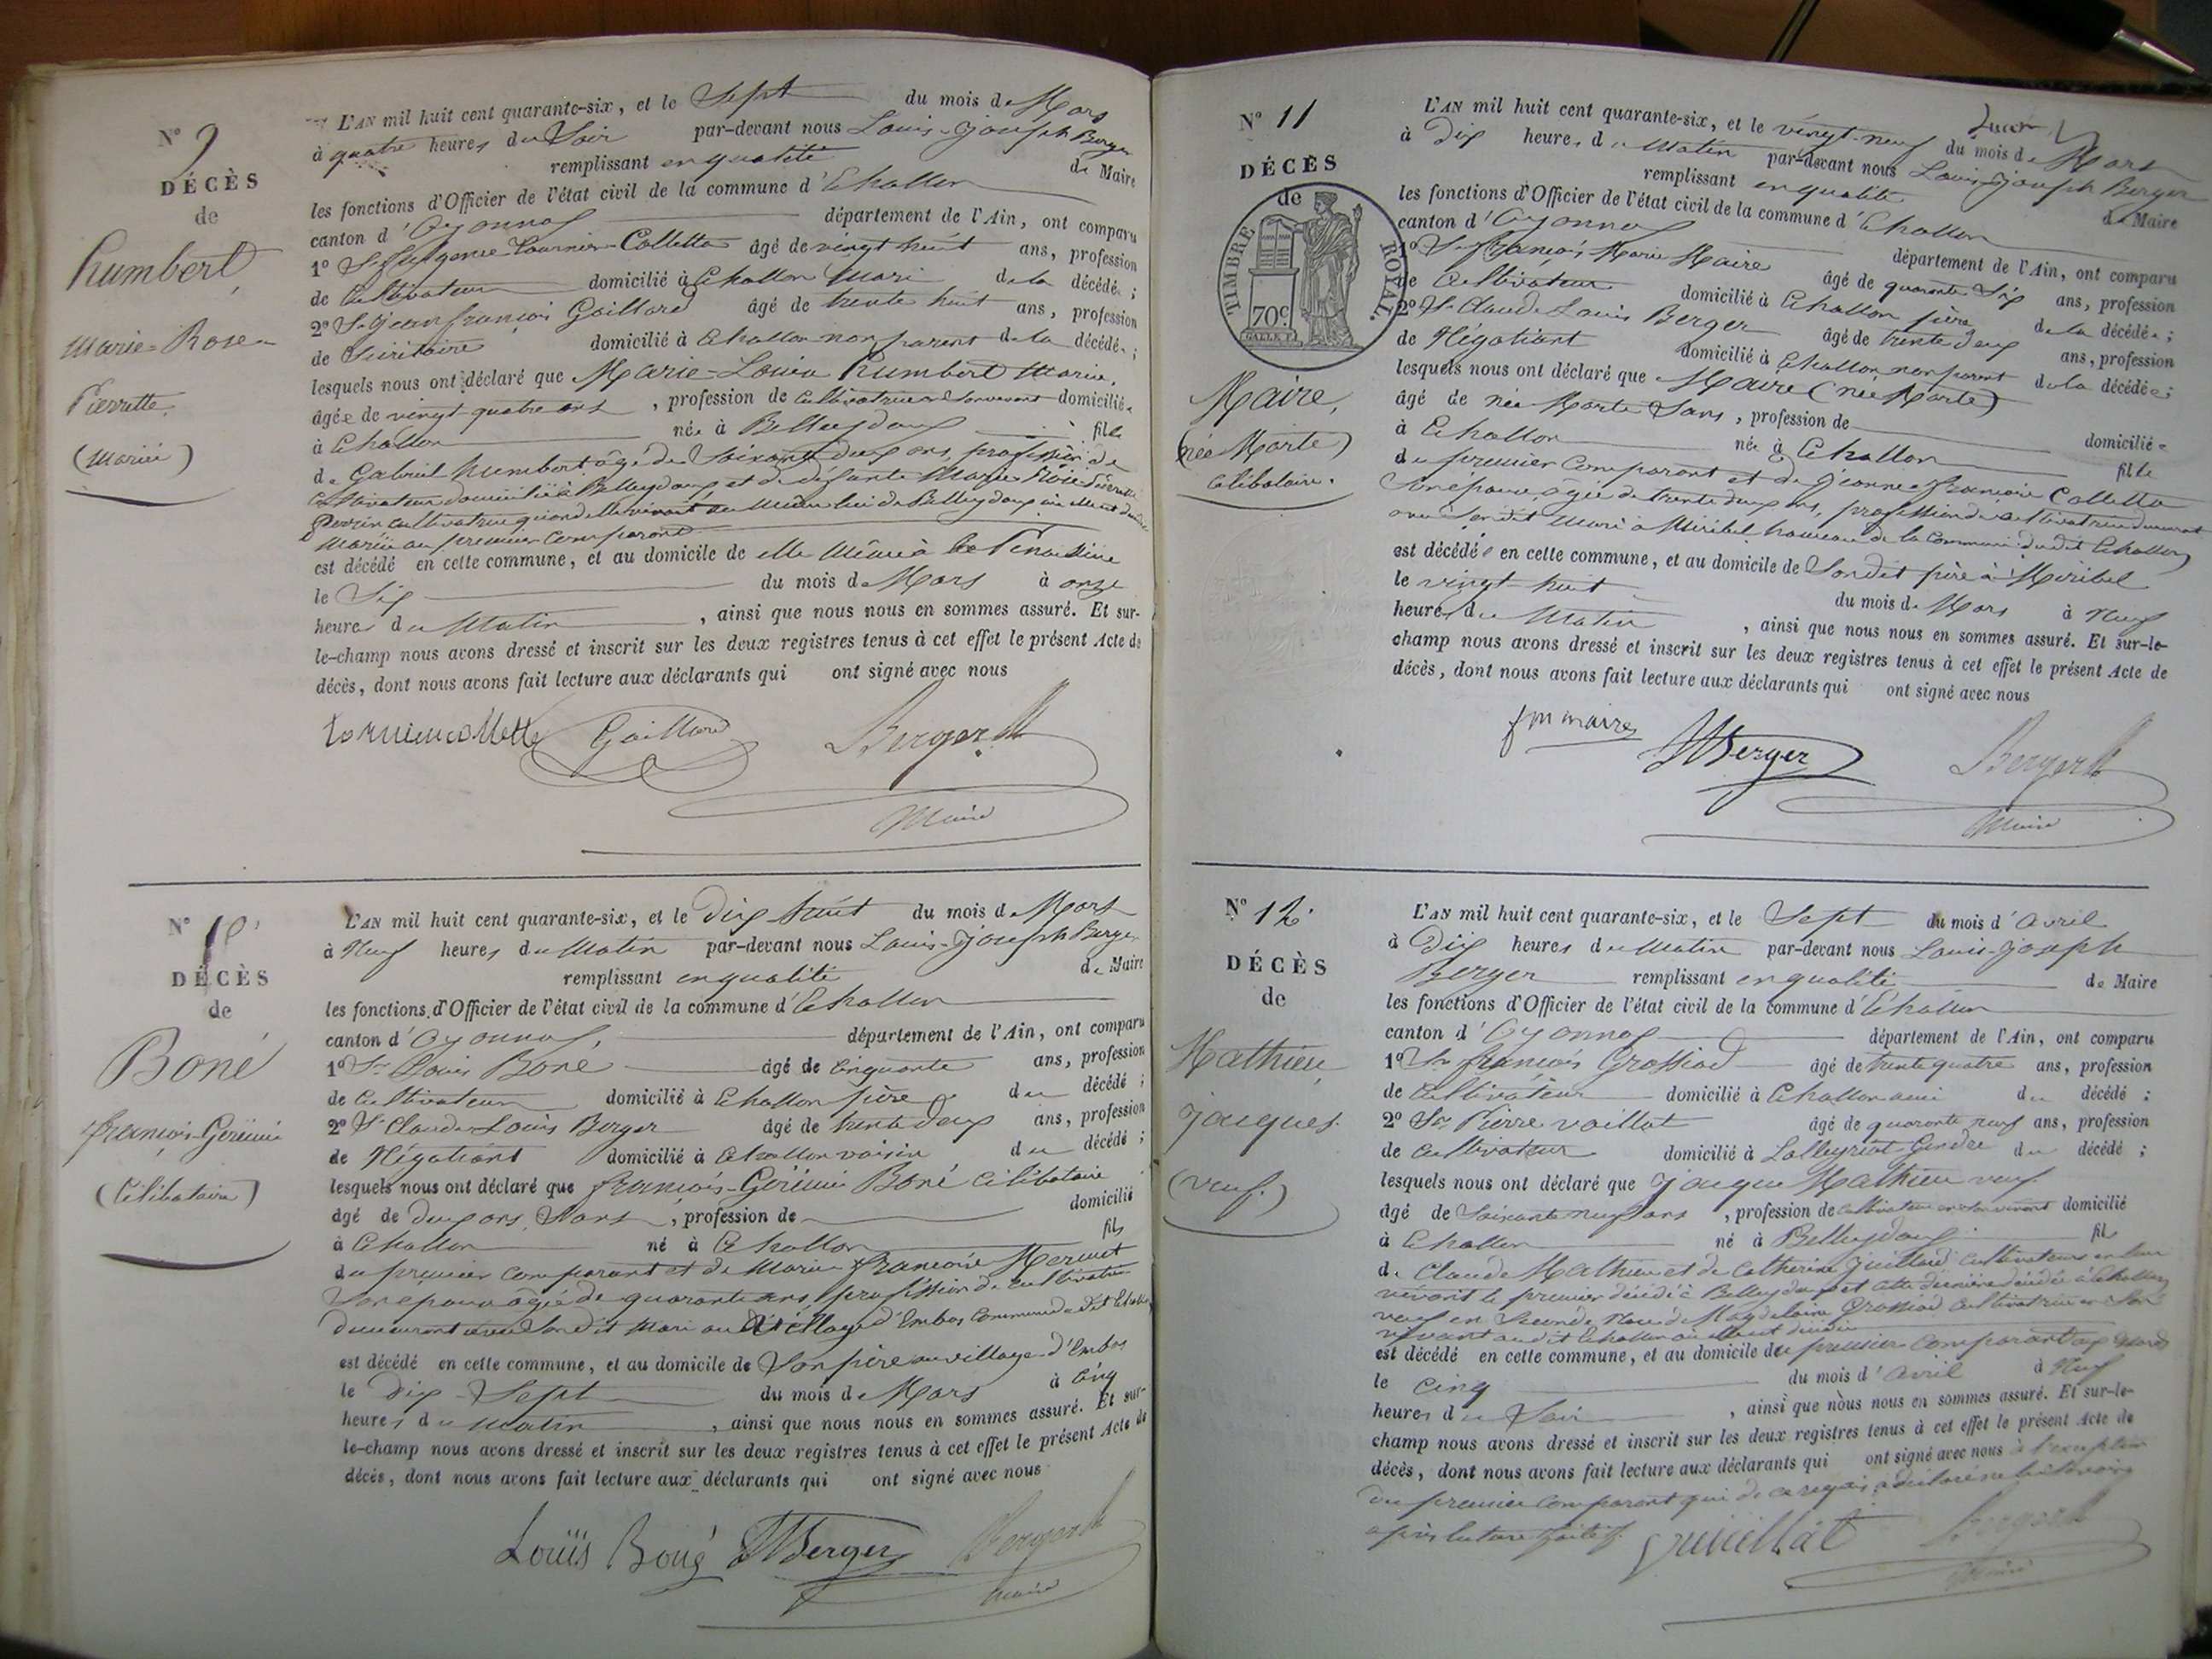 N° 9
DÉCÈS
de
humbert,
Marie-Rose
Pierrette
(Mariée)
L'AN mil huit cent quarante-six, et le Sept du mois de Mars
à quatre heures du Soir par-devant nous Louis-Joseph Berger
remplissant en qualité de Maire
les fonctions d'Officier de l'état civil de la commune d'Echallon
canton d'Oyonnax département de l'Ain, ont comparu
1° Sr fulgence Tournier-Collette âgé de vingt huit ans, profession
de Cultivateur domicilié à Echallon Mari de la décédée ;
2° Sr Jean françois Gaillard âgé de trente huit ans, profession
de domicilié à Echallon non parent de la décédée ;
lesquels nous ont déclaré que Marie-Louise humbert Mariée,
âgée de vingt quatre ans, profession de Cultivatrice en son vivant domiciliée
à Echallon née à Belleydoux fille
de Gabriel humbert âgé de Soixante deux ans, profession de
Cultivateur domicilié à Belleydoux et de défunte Marie Rose Pierrette
Perrin cultivatrice quand elle vivait au même lieu de Belleydoux où elle est décédée
Mariée au premier comparant
est décédée en cette commune, et au domicile de elle même à
le Six du mois de Mars à onze
heures du Matin, ainsi que nous nous en sommes assuré. Et sur-
le-champ nous avons dressé et inscrit sur les deux registres tenus à cet effet le présent Acte de
décès, dont nous avons fait lecture aux déclarants qui ont signé avec nous
tornier collette Gaillard Berger
Maire
N° 10
DÉCÈS
de
Boné
françois-Gérémie
(Célibataire)
L'AN mil huit cent quarante-six, et le Dix huit du mois de Mars
à Neuf heures du Matin par-devant nous Louis-Joseph Berger
remplissant en qualité de Maire
les fonctions d'Officier de l'état civil de la commune d'Echallon
canton d'Oyonnax, département de l'Ain, ont comparu
1° Sr Louis Boné âgé de Cinquante ans, profession
de Cultivateur domicilié à Echallon père du décédé ;
2° Sr Claude Louis Berger âgé de trente deux ans, profession
de Négotiant domicilié à Echallon voisin du décédé ;
lesquels nous ont déclaré que françois-Gérémie Boné Célibataire
âgé de deux ans, Sans, profession de domicilié
à Echallon né à Echallon fils
du premier comparant et de Marie françoise Mermet
Son épouse âgée de quarante ans, profession de cultivatrice
Demeurant avec Son dit Mari au Village d'Embos Commune dudit Echallon
est décédé en cette commune, et au domicile de Son père au village d'Embos
le Dix-Sept du mois de Mars à Cinq
heures du Matin, ainsi que nous nous en sommes assuré. Et sur-
le-champ nous avons dressé et inscrit sur les deux registres tenus à cet effet le présent Acte de
décès, dont nous avons fait lecture aux déclarants qui ont signé avec nous
Louïs Boné Berger Berger
Maire
N° 11
DÉCÈS
de
TIMBRE ROYAL.
70c
Maire,
(née Morte)
Célibataire.
L'AN mil huit cent quarante-six, et le vingt-neuf du mois de Mars
à Dix heures du Matin par-devant nous Louis-Joseph Berger
remplissant en qualité de Maire
les fonctions d'Officier de l'état civil de la commune d'Echallon
canton d'Oyonnax département de l'Ain, ont comparu
1° Sr françois Marie Maire âgé de quarante Six ans, profession
de Cultivateur domicilié à Echallon père de la décédée ;
2° Sr Claude Louis Berger âgé de trente deux ans, profession
de Négotiant domicilié à Echallon non parent de la décédée ;
lesquels nous ont déclaré que Maire (née Morte)
âgé de née Morte Sans, profession de domiciliée
à Echallon née à Echallon fille
du premier Comparant et de Jeanne françoise Collette
Son épouse, âgée de trente deux ans, profession de cultivatrice demeurant
avec Son dit Mari à Miribel hameau de la Commune dudit Echallon
est décédée en cette commune, et au domicile de Son dit père à Miribel
le vingt-huit du mois de Mars à Neuf
heures du Matin, ainsi que nous nous en sommes assuré. Et sur-le-
champ nous avons dressé et inscrit sur les deux registres tenus à cet effet le présent Acte de
décès, dont nous avons fait lecture aux déclarants qui ont signé avec nous
fm maire Berger Berger
Maire
N° 12
DÉCÈS
de
Mathieu,
Jacques.
(veuf.)
L'AN mil huit cent quarante-six, et le Sept du mois d'Avril
à Dix heures du Matin par-devant nous Louis-Joseph
Berger remplissant en qualité de Maire
les fonctions d'Officier de l'état civil de la commune d'Echallon
canton d'Oyonnax département de l'Ain, ont comparu
1° Sr françois Grossiord âgé de trente quatre ans, profession
de Cultivateur domicilié à Echallon ami du décédé ;
2° Sr Pierre vaillat âgé de quarante neuf ans, profession
de Cultivateur domicilié à Lalleyriat Gendre du décédé ;
lesquels nous ont déclaré que Jacques Mathieu veuf
âgé de Soixante neuf ans, profession de cultivateur en son vivant domicilié
à Echallon né à Belleydoux fils
de Claude Mathieu et de Catherine Juillard cultivateurs en leur
vivant le premier décédé à Belleydoux et cette dernière décédée à Echallon
veuf en Seconde Noce de Magdelaine Grossiord cultivatrice en Son
vivant audit Echallon où elle est décédée
est décédé en cette commune, et au domicile du premier comparant
le Cinq du mois d'Avril à Neuf
heures du Soir, ainsi que nous nous en sommes assuré. Et sur-le-
champ nous avons dressé et inscrit sur les deux registres tenus à cet effet le présent Acte de
décès, dont nous avons fait lecture aux déclarants qui ont signé avec nous à l'exception
du premier comparant qui de ce requis a déclaré ne le Savoir
après lecture faite.
Berger
Maire